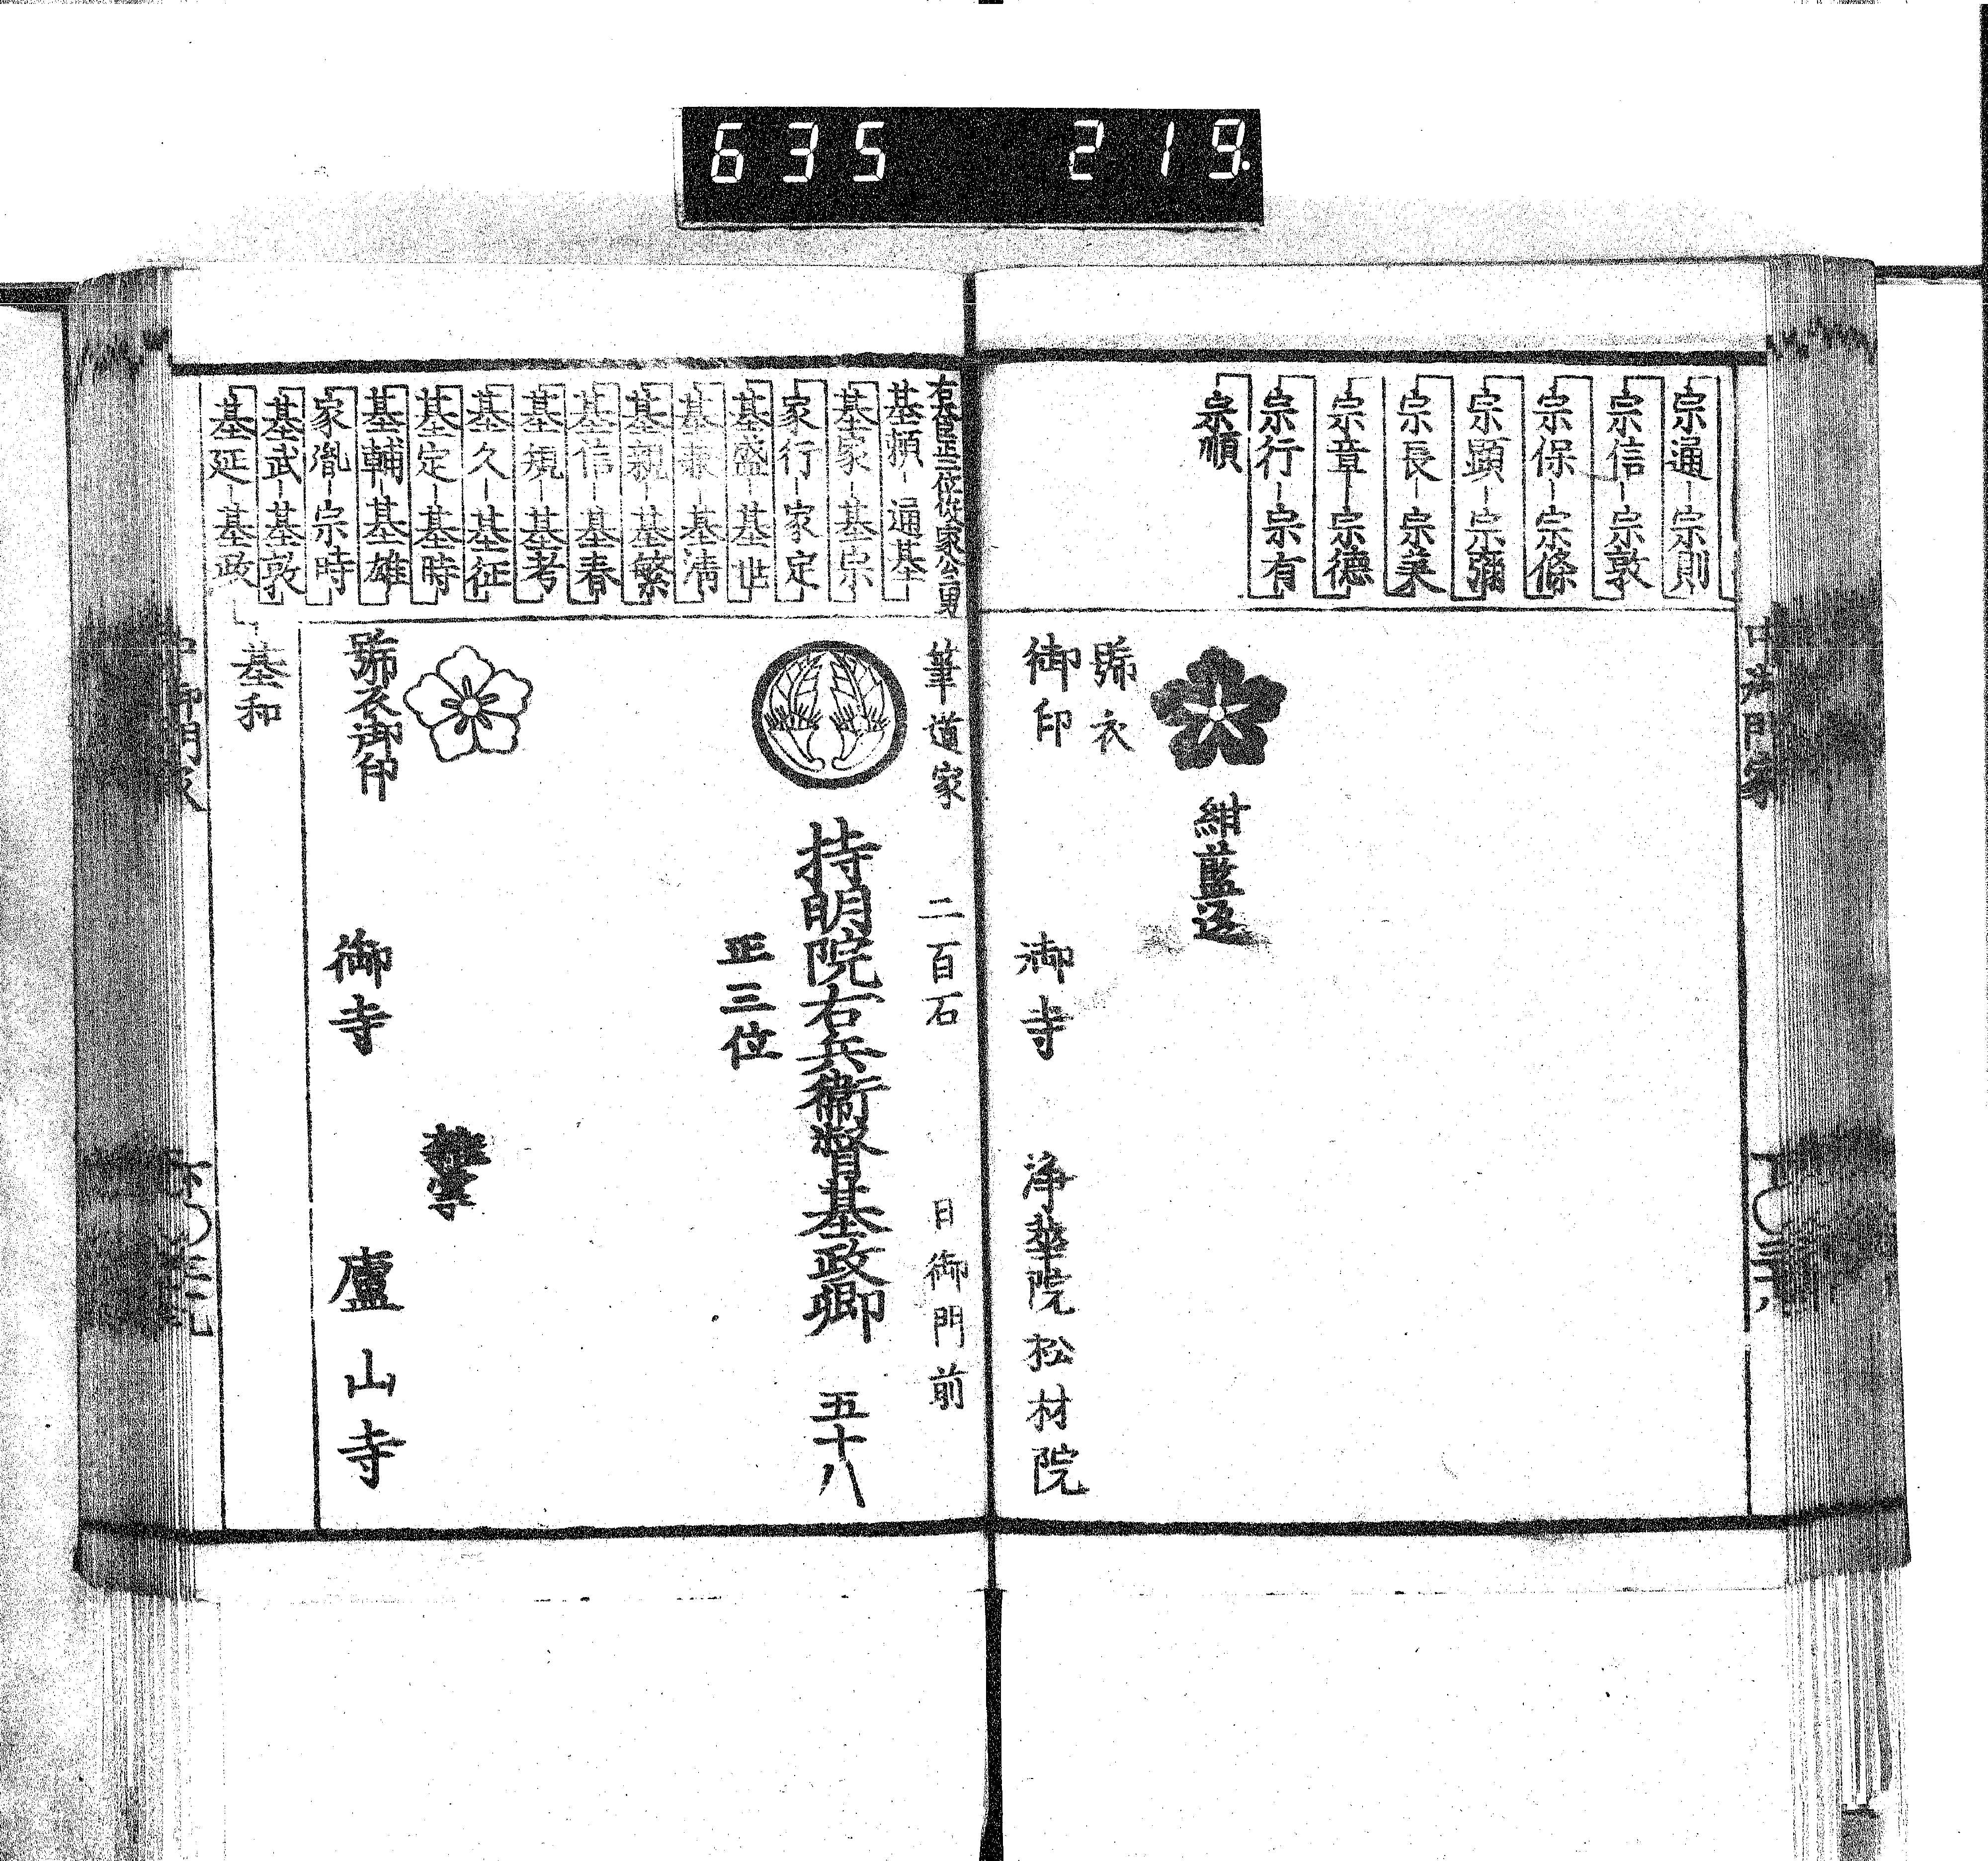 635 219
宗通―宗則
宗信―宗敦
宗保―宗條
宗顕―宗彌
宗長―宗兼
宗章―宗德
宗行―宗有
宗順
紺藍返
號衣
御印
御寺
浄華院松林院
右大臣正二位俊家公男
基頼―通基
基家―基宗
家行―家定
基盛―基世
基兼―基清
基親―基繁
基信―基春
基規―基考
基久―基征
基定―基時
基輔―基雄
家胤―宗時
基武―基敦
基延―基政
基和
筆道家
二百石
日御門前
持明院右兵衛督基政卿
五十八
正三位
號衣御印
御寺
廬山寺